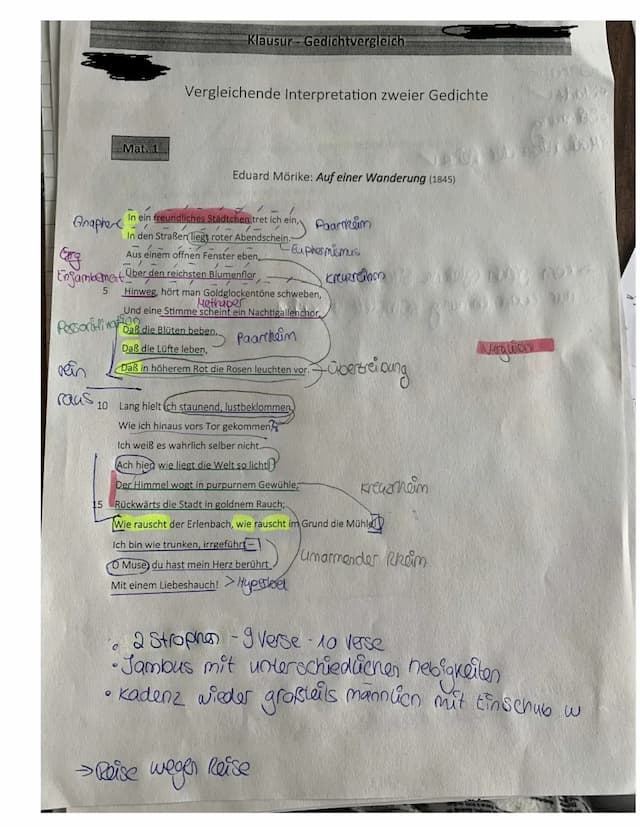 Klausur - Gedichtvergleich
Vergleichende Interpretation zweier Gedichte
Mat. 1
Eduard Mörike: Auf einer Wanderung (1845)
Anapher In ein freundliches Städtchen tret ich ein, Paarreim
In den Straßen liegt roter Abendschein. Euphemismus
Aus einem offnen Fenster eben,
Enjambement Über den reichsten Blumenflor Kreuzreim
5 Hinweg, hört man Goldglockentöne schweben,
Metapher
Und eine Stimme scheint ein Nachtigallenchor,
Daß die Blüten beben, Paarreim
Daß die Lüfte leben,
Daß in höherem Rot die Rosen leuchten vor. Übertreibung
rein
raus
10 Lang hielt ich staunend, lustbeklommen.
Wie ich hinaus vors Tor gekommen,
Ich weiß es wahrlich selber nicht.
Ach hier, wie liegt die Welt so licht!
Der Himmel wogt in purpurnem Gewühle, Kreuzreim
15 Rückwärts die Stadt in goldnem Rauch;
Wie rauscht der Erlenbach, wie rauscht im Grund die Mühle!
Ich bin wie trunken, irrgeführt -
O Muse, du hast mein Herz berührt umarmender Reim
Mit einem Liebeshauch!
• 2 Strophen - 9 Verse - 10 Verse
• Jambus mit unterschiedlichen hebigkeiten
• Kadenz wieder großteils männlich mit Einschub w
→ Reise wegen Reise